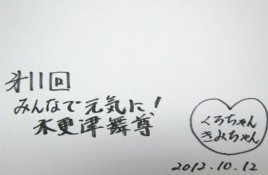 第11回
みんなで元気に!
木更津舞尊
くろちゃん
きみちゃん
2012.10.12